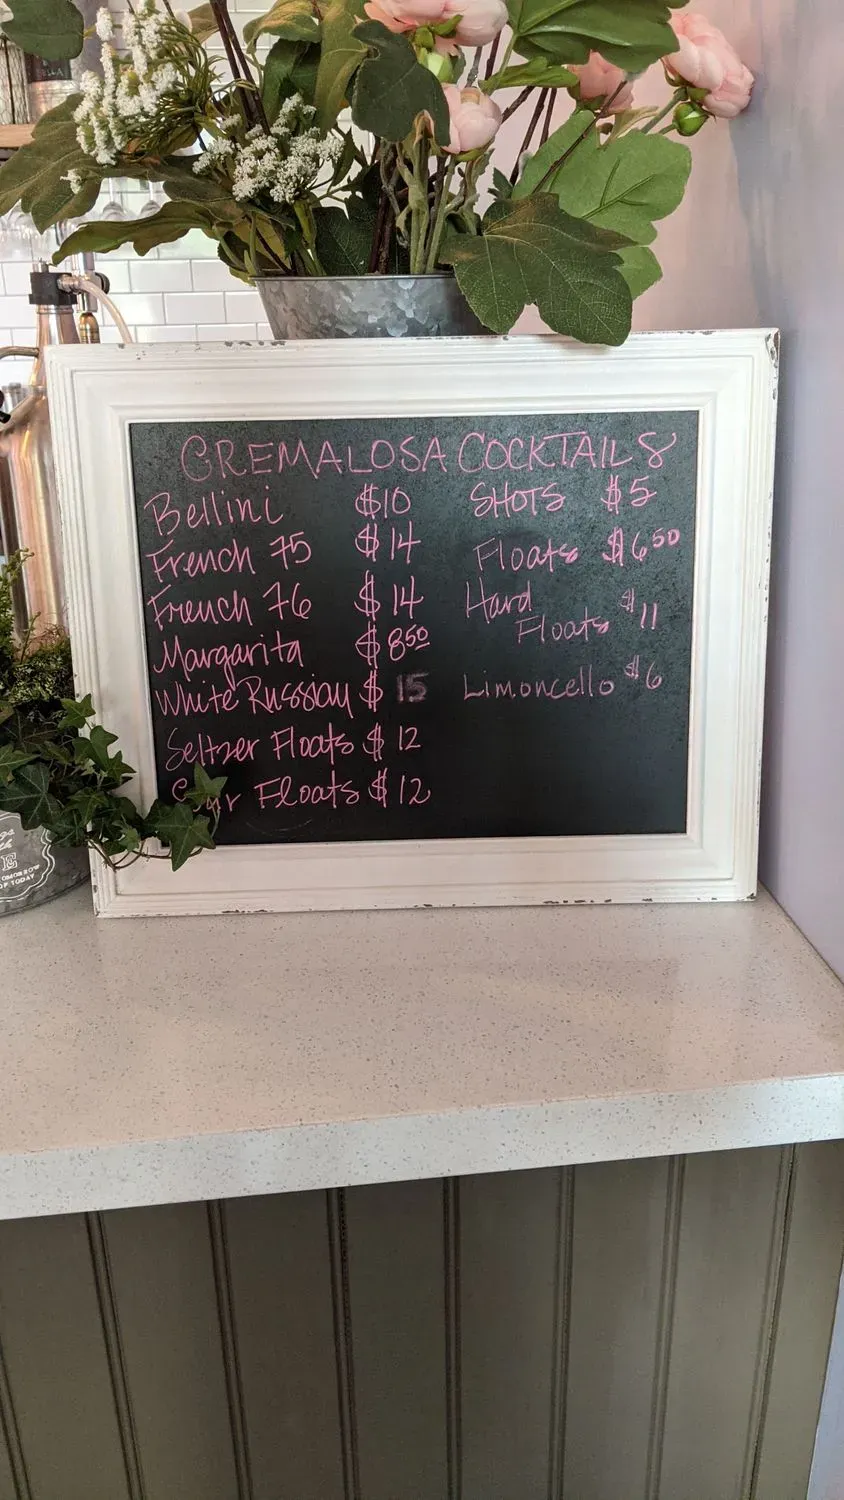 CREMALOSA COCKTAILS
Bellini $10
French 75 $14
French 76 $14
Margarita $8.50
White Russian $15
Seltzer Floats $12
Floats $12
SHOTS $5
Floats $6.50
Hard
Floats $11
Limoncello $6
TODAY